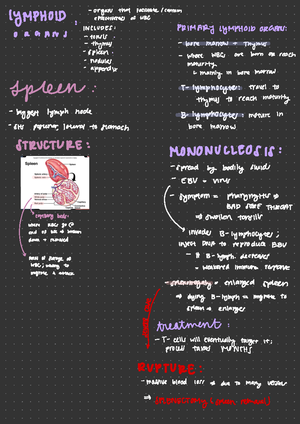 LYMPHOID
ORGANS
- organs that
of WBC
INCLUDES:
- tonsils
- thymus
- spleen
- nodules
- appendix
PRIMARY LYMPHOID ORGANS:
- bone marrow + thymus
- where WBC are born to reach
maturity
mainly in bone marrow
T-lymphocytes: travel to
thymus to reach maturity
B-lymphocytes: mature in
bone marrow
spleen:
- biggest lymph node
- sits posterior/lateral to stomach
STRUCTURE:
Spleen
where WBC go @
end of life → broken
down + removed
WBC; waiting to
migrate + attack
MONONUCLEOSIS:
- spread by bodily fluid
- EBV = virus
- symptom = pharyngitis →
BAD SORE THROAT
⇒ swollen tonsils
invades B-lymphocytes;
DNA to reproduce EBV
- # B-lymph. decrease
= weakened immune response
- splenomegaly = enlarged spleen
⇒ dying B-lymph = migrate to
spleen = enlarges
treatment:
- T-cells will eventually target it;
process takes MONTHS
RUPTURE:
- massive blood loss → due to many vessels
⇒ splenectomy (